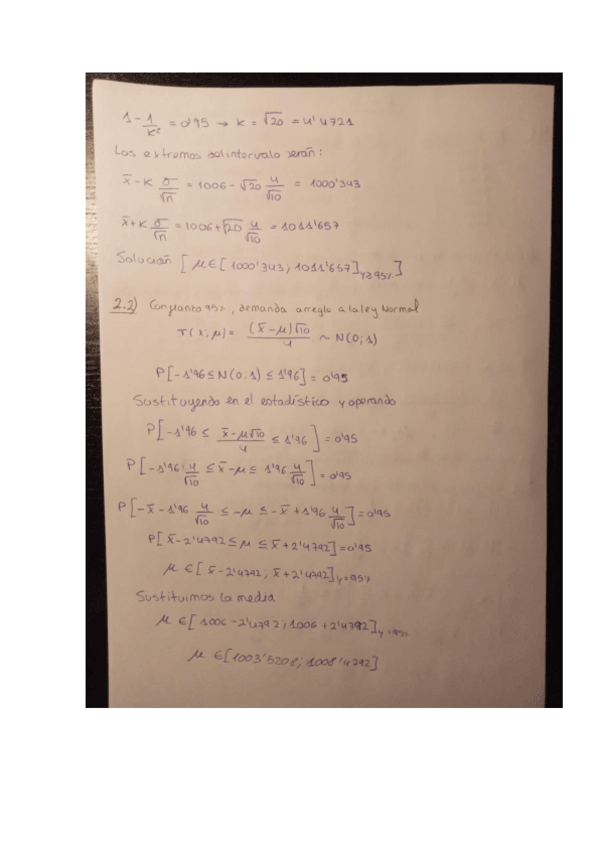 1 - 1/K² = 0'95 → K = √20 = 4'4721
Los extremos del intervalo serán:
x̄ - K σ/√n = 1006 - √20 4/√10 = 1000'343
x̄ + K σ/√n = 1006 + √20 4/√10 = 1011'657
Solución [ μ ∈ [ 1000'343 ; 1011'657 ]γ≥95% ]
2.2) Confianza 95%, demanda arreglo a la ley Normal
T(x; μ) = (x̄ - μ)√10 / 4 ~ N(0; 1)
P[ -1'96 ≤ N(0; 1) ≤ 1'96 ] = 0'95
Sustituyendo en el estadístico y operando
P[ -1'96 ≤ x̄ - μ√10 / 4 ≤ 1'96 ] = 0'95
P[ -1'96 · 4/√10 ≤ x̄ - μ ≤ 1'96 4/√10 ] = 0'95
P[ -x̄ - 1'96 4/√10 ≤ -μ ≤ -x̄ + 1'96 4/√10 ] = 0'95
P[ x̄ - 2'4792 ≤ μ ≤ x̄ + 2'4792 ] = 0'95
μ ∈ [ x̄ - 2'4792 ; x̄ + 2'4792 ]γ=95%
Sustituimos la media
μ ∈ [ 1006 - 2'4792 ; 1006 + 2'4792 ]γ=95%
μ ∈ [ 1003'5208 ; 1008'4792 ]